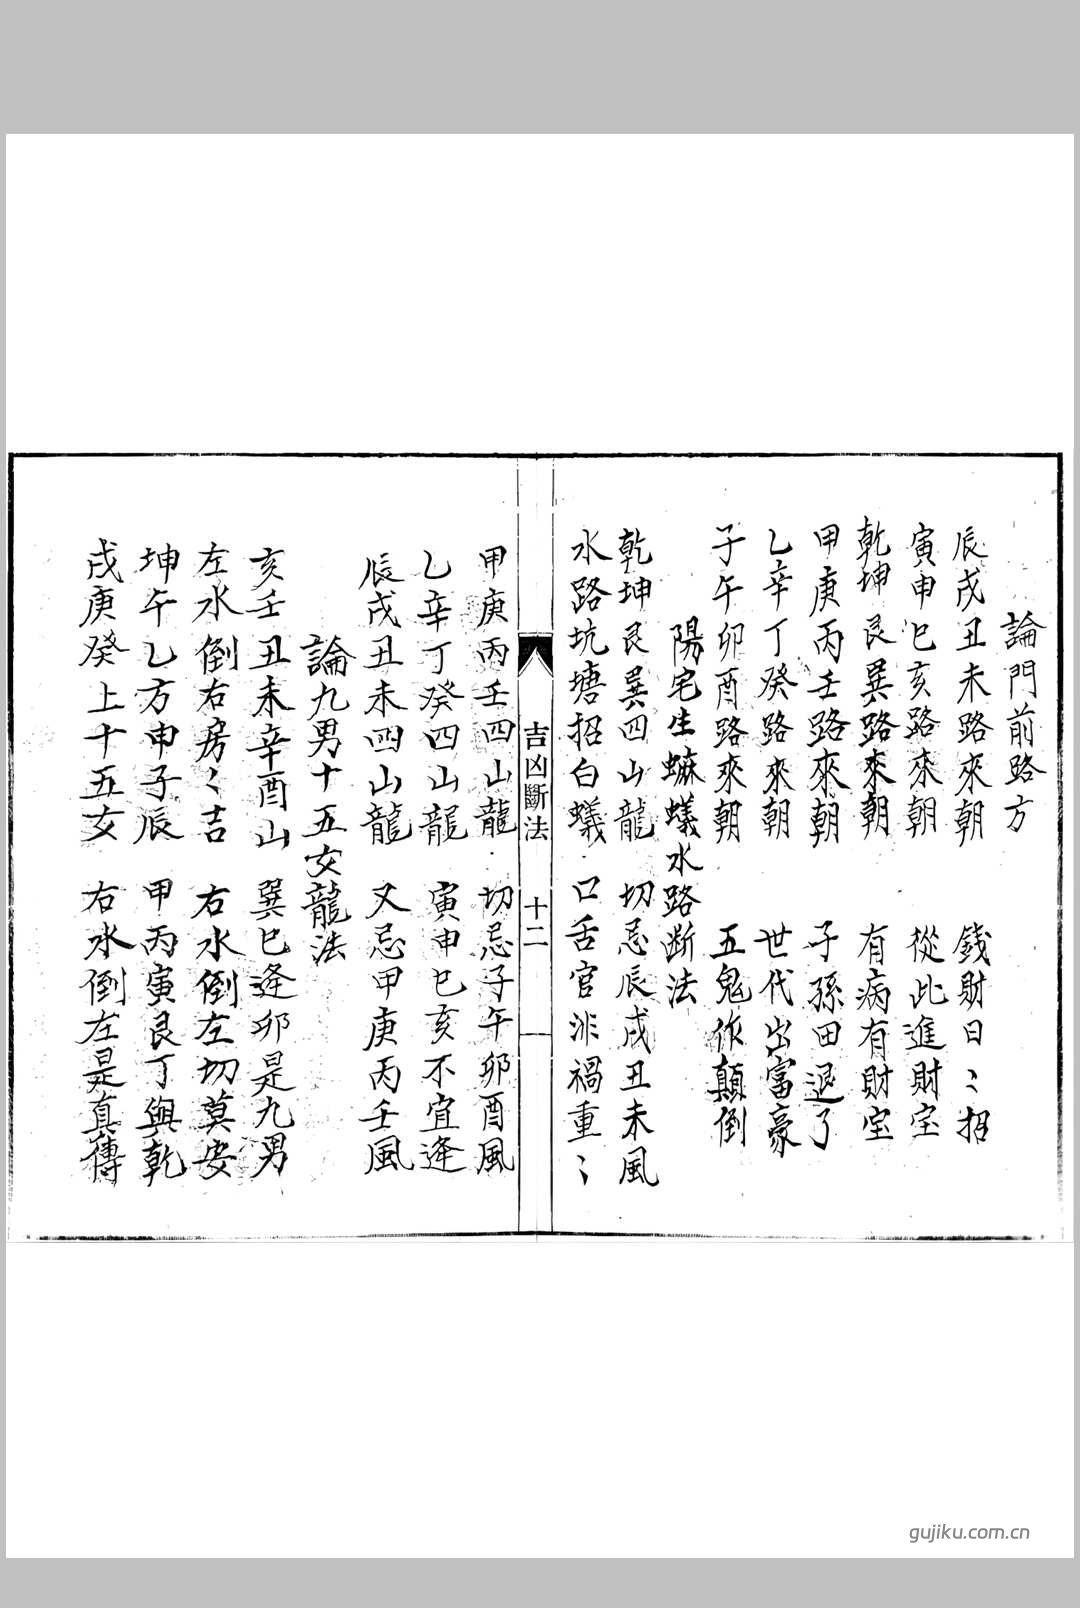 論門前路方
辰戌丑未路來朝　錢財日〻招
寅申巳亥路來朝　從此進財宝
乾坤艮巽路來朝　有病有財宝
甲庚丙壬路來朝　子孫田退了
乙辛丁癸路來朝　世代出富豪
子午卯酉路來朝　五鬼作顛倒
陽宅生蟻蟻水路断法
乾坤艮巽四山龍　切忌辰戌丑未風
水路坑塘招白蟻　口舌官非禍重〻
吉凶斷法　十二
甲庚丙壬四山龍　切忌子午卯酉風
乙辛丁癸四山龍　寅申巳亥不宜逢
辰戌丑未四山龍　又忌甲庚丙壬風
論九男十五女龍法
亥壬丑未辛酉山　巽巳逢卯是九男
左水倒右房〻吉　右水倒左切莫安
坤午乙方申子辰　甲丙寅艮丁與乾
戌庚癸上十五女　右水倒左是真傳
gujiku.com.cn